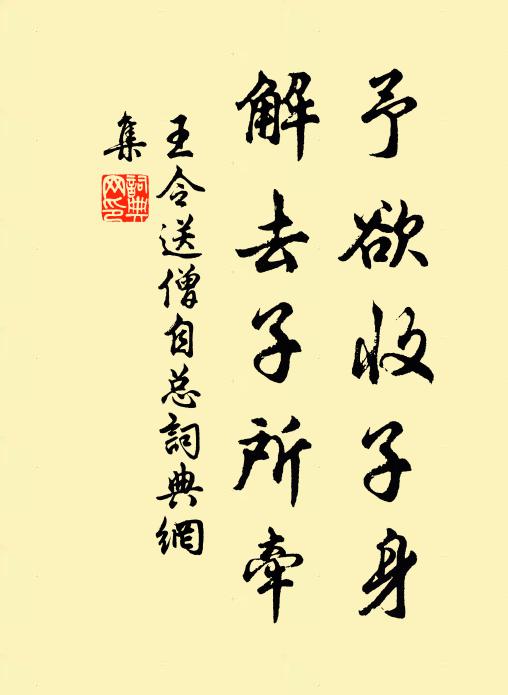 予欲收子身
解去子所牽
王令送僧自总詞典網
集
詞典網印